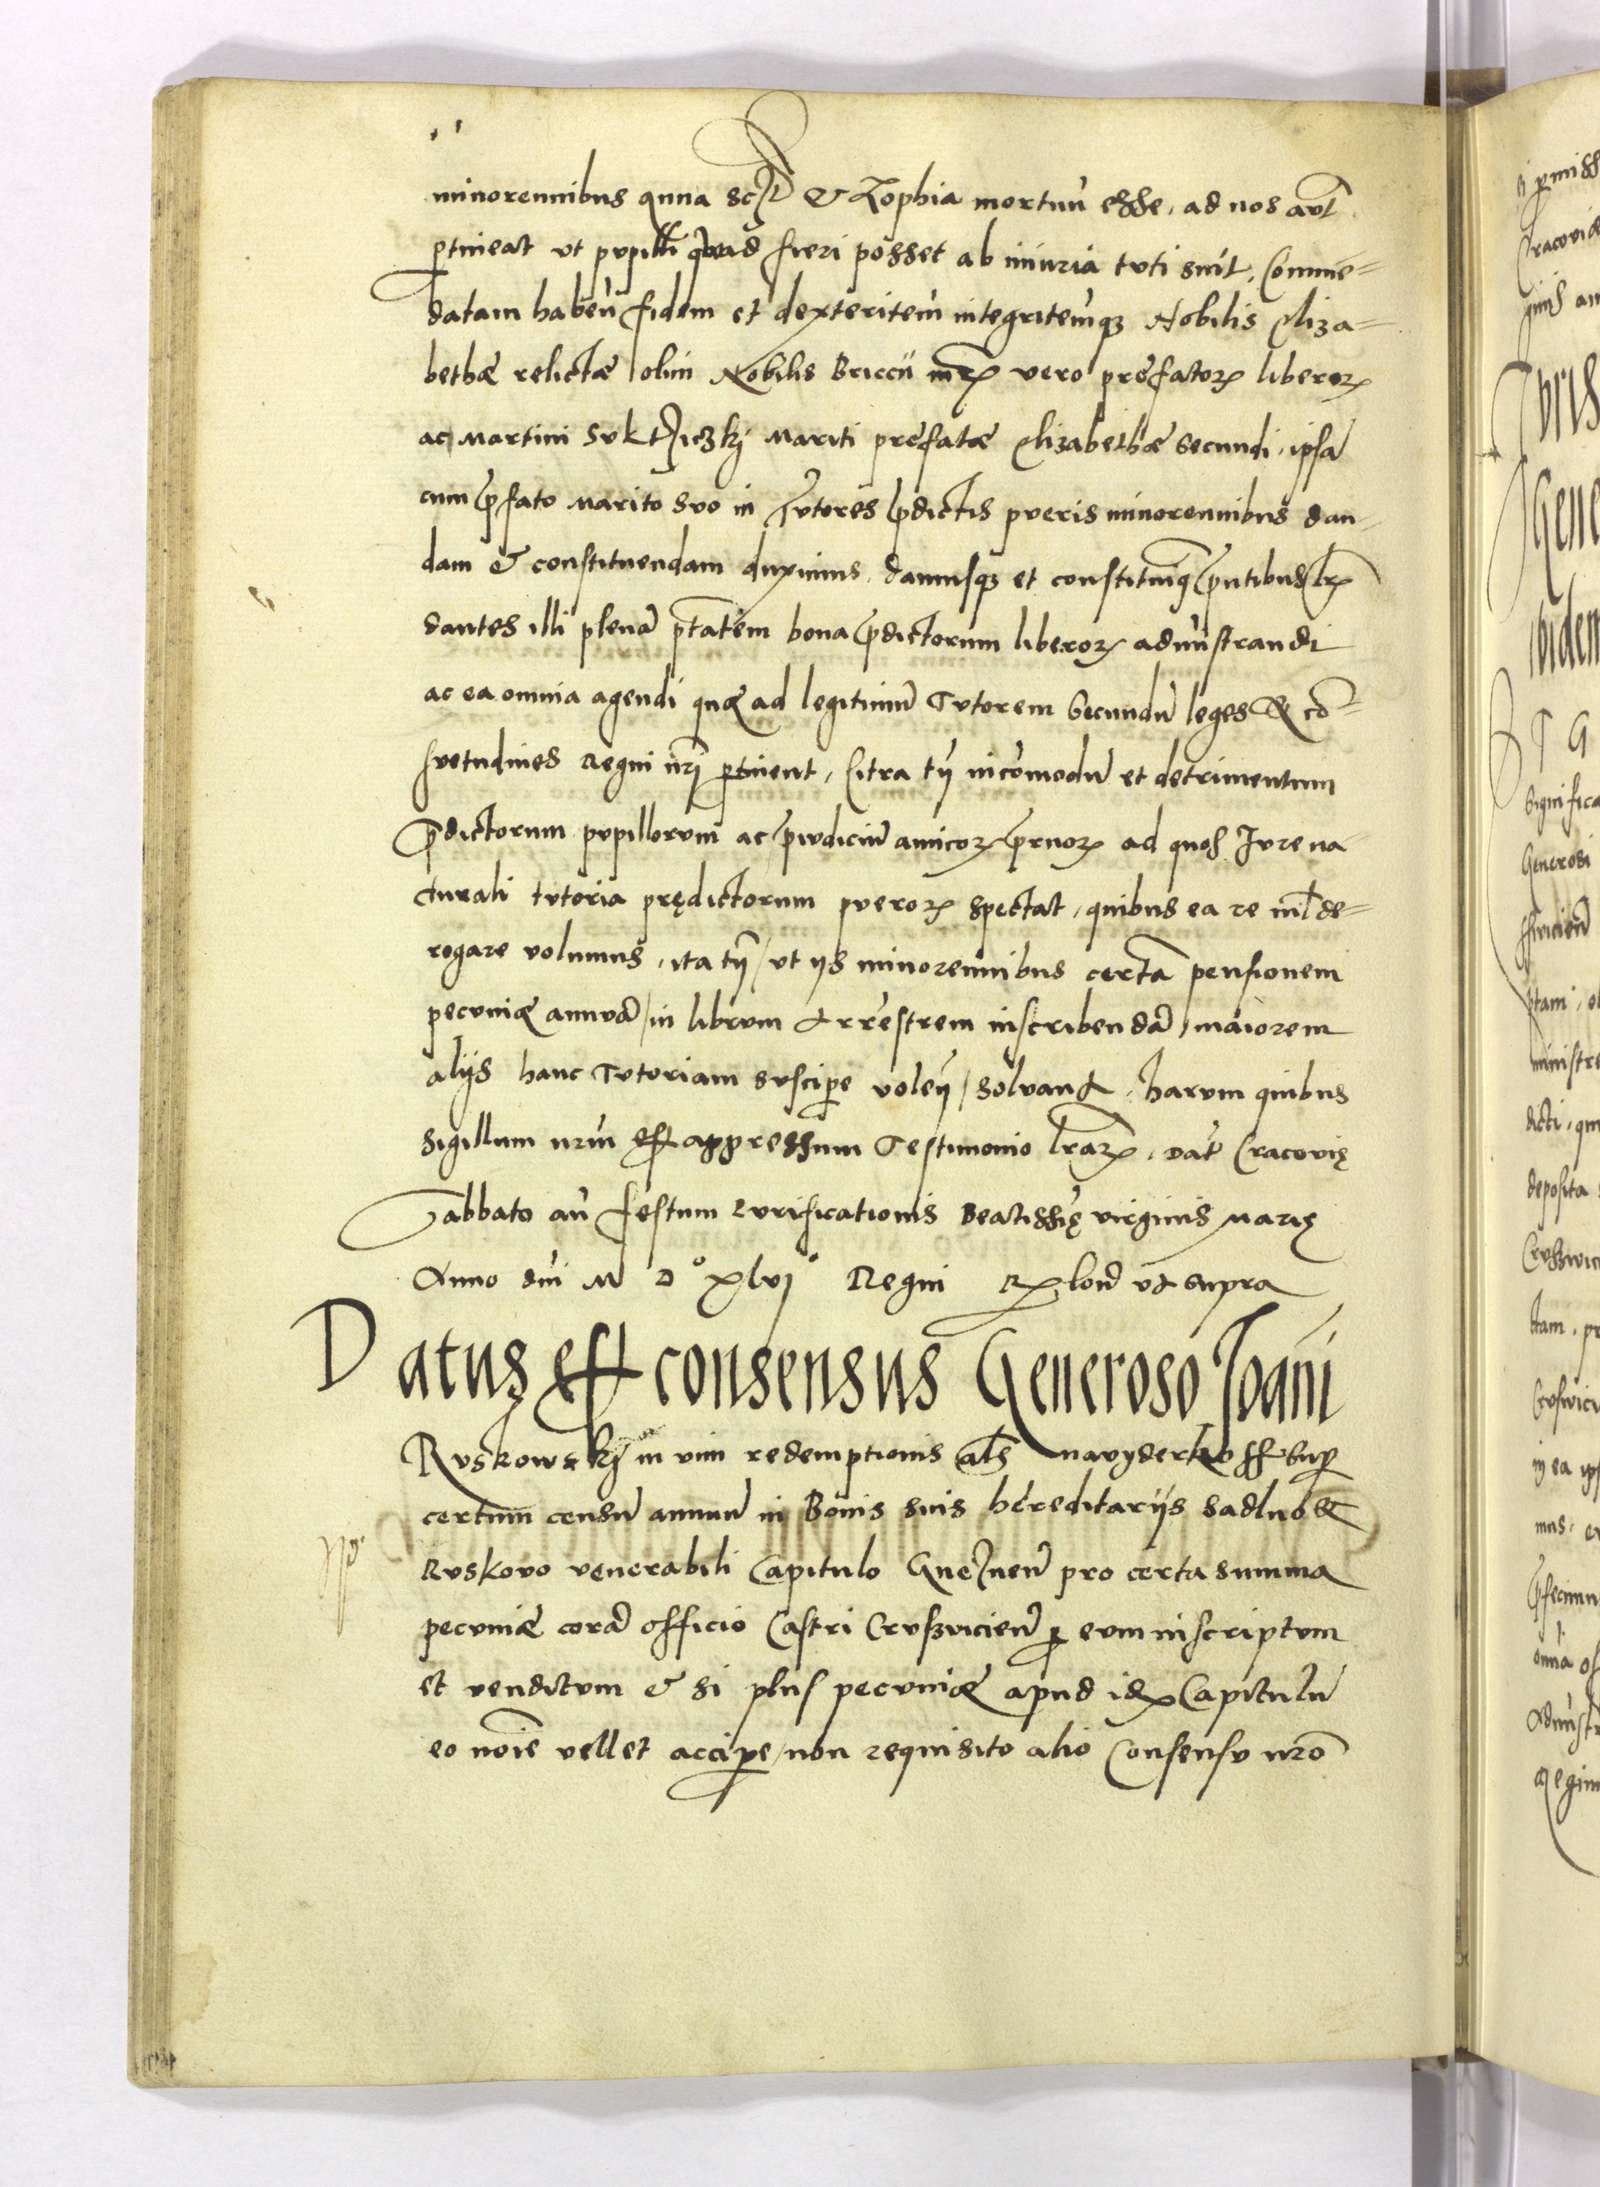 minorennibus & Zophia mortuu esse, ad nos aut
ptineat ut pupilli quoad fieri posset ab iniuria tuti sint. Comme=
datam haben fidem et dexteritem integritemqz Nobilis Eliza=
bethæ relictæ olim Nobilis Briccii vero prefatorz liberorz
ac Martini Mariti prefatæ Elizabethæ secundi, ipsa
cum pfato Marito suo in Tutores pdictis pueris minorennibus dan
dam & constituendam duximus, damusqz et constituimq pntibus lrz
dantes illi plena ptatem bona pdictorum liberorz administrandi
ac ea omnia agendi quæ ad legitimu Tutorem secundu leges & co=
suetudines Regni nri ptinent, Citra tn incomodu et detrimentum
pdictorum pupillorum ac piudiciu amicorz ad quos Jure na
turali tutoria prędictorum puerorz spectat, quibus ea re nil de=
rogare volumus, ita tn, ut ijs minorennibus certa pensionem
pecuniæ annua, in librum terrestrem inscribenda, maiorem
alijs hanc Tutoriam suscipe volen, solvant. Harum quibus
Sigillum nrm est appressum Testimonio lrarz. Dat Cracovię
Sabbato an festum Purificationis Beatissię virginis Marię
Anno dni M D° xlvj° Regni ut supra
Datus est consensus Generoso Joani
Ruskowskj in vim redemptionis als navyderkoff sup
certum censu annuu in Bonis suis hereditarijs Sadlno &
Ruskovo venerabili Capitulo Gneznen pro certa summa
pecuniæ cora officio Castri Crusvicien p eum inscriptum
et venditum & si plus pecuniæ apud idx Capitulu
eo noie vellet accipe, non requisito alio Consensu nro